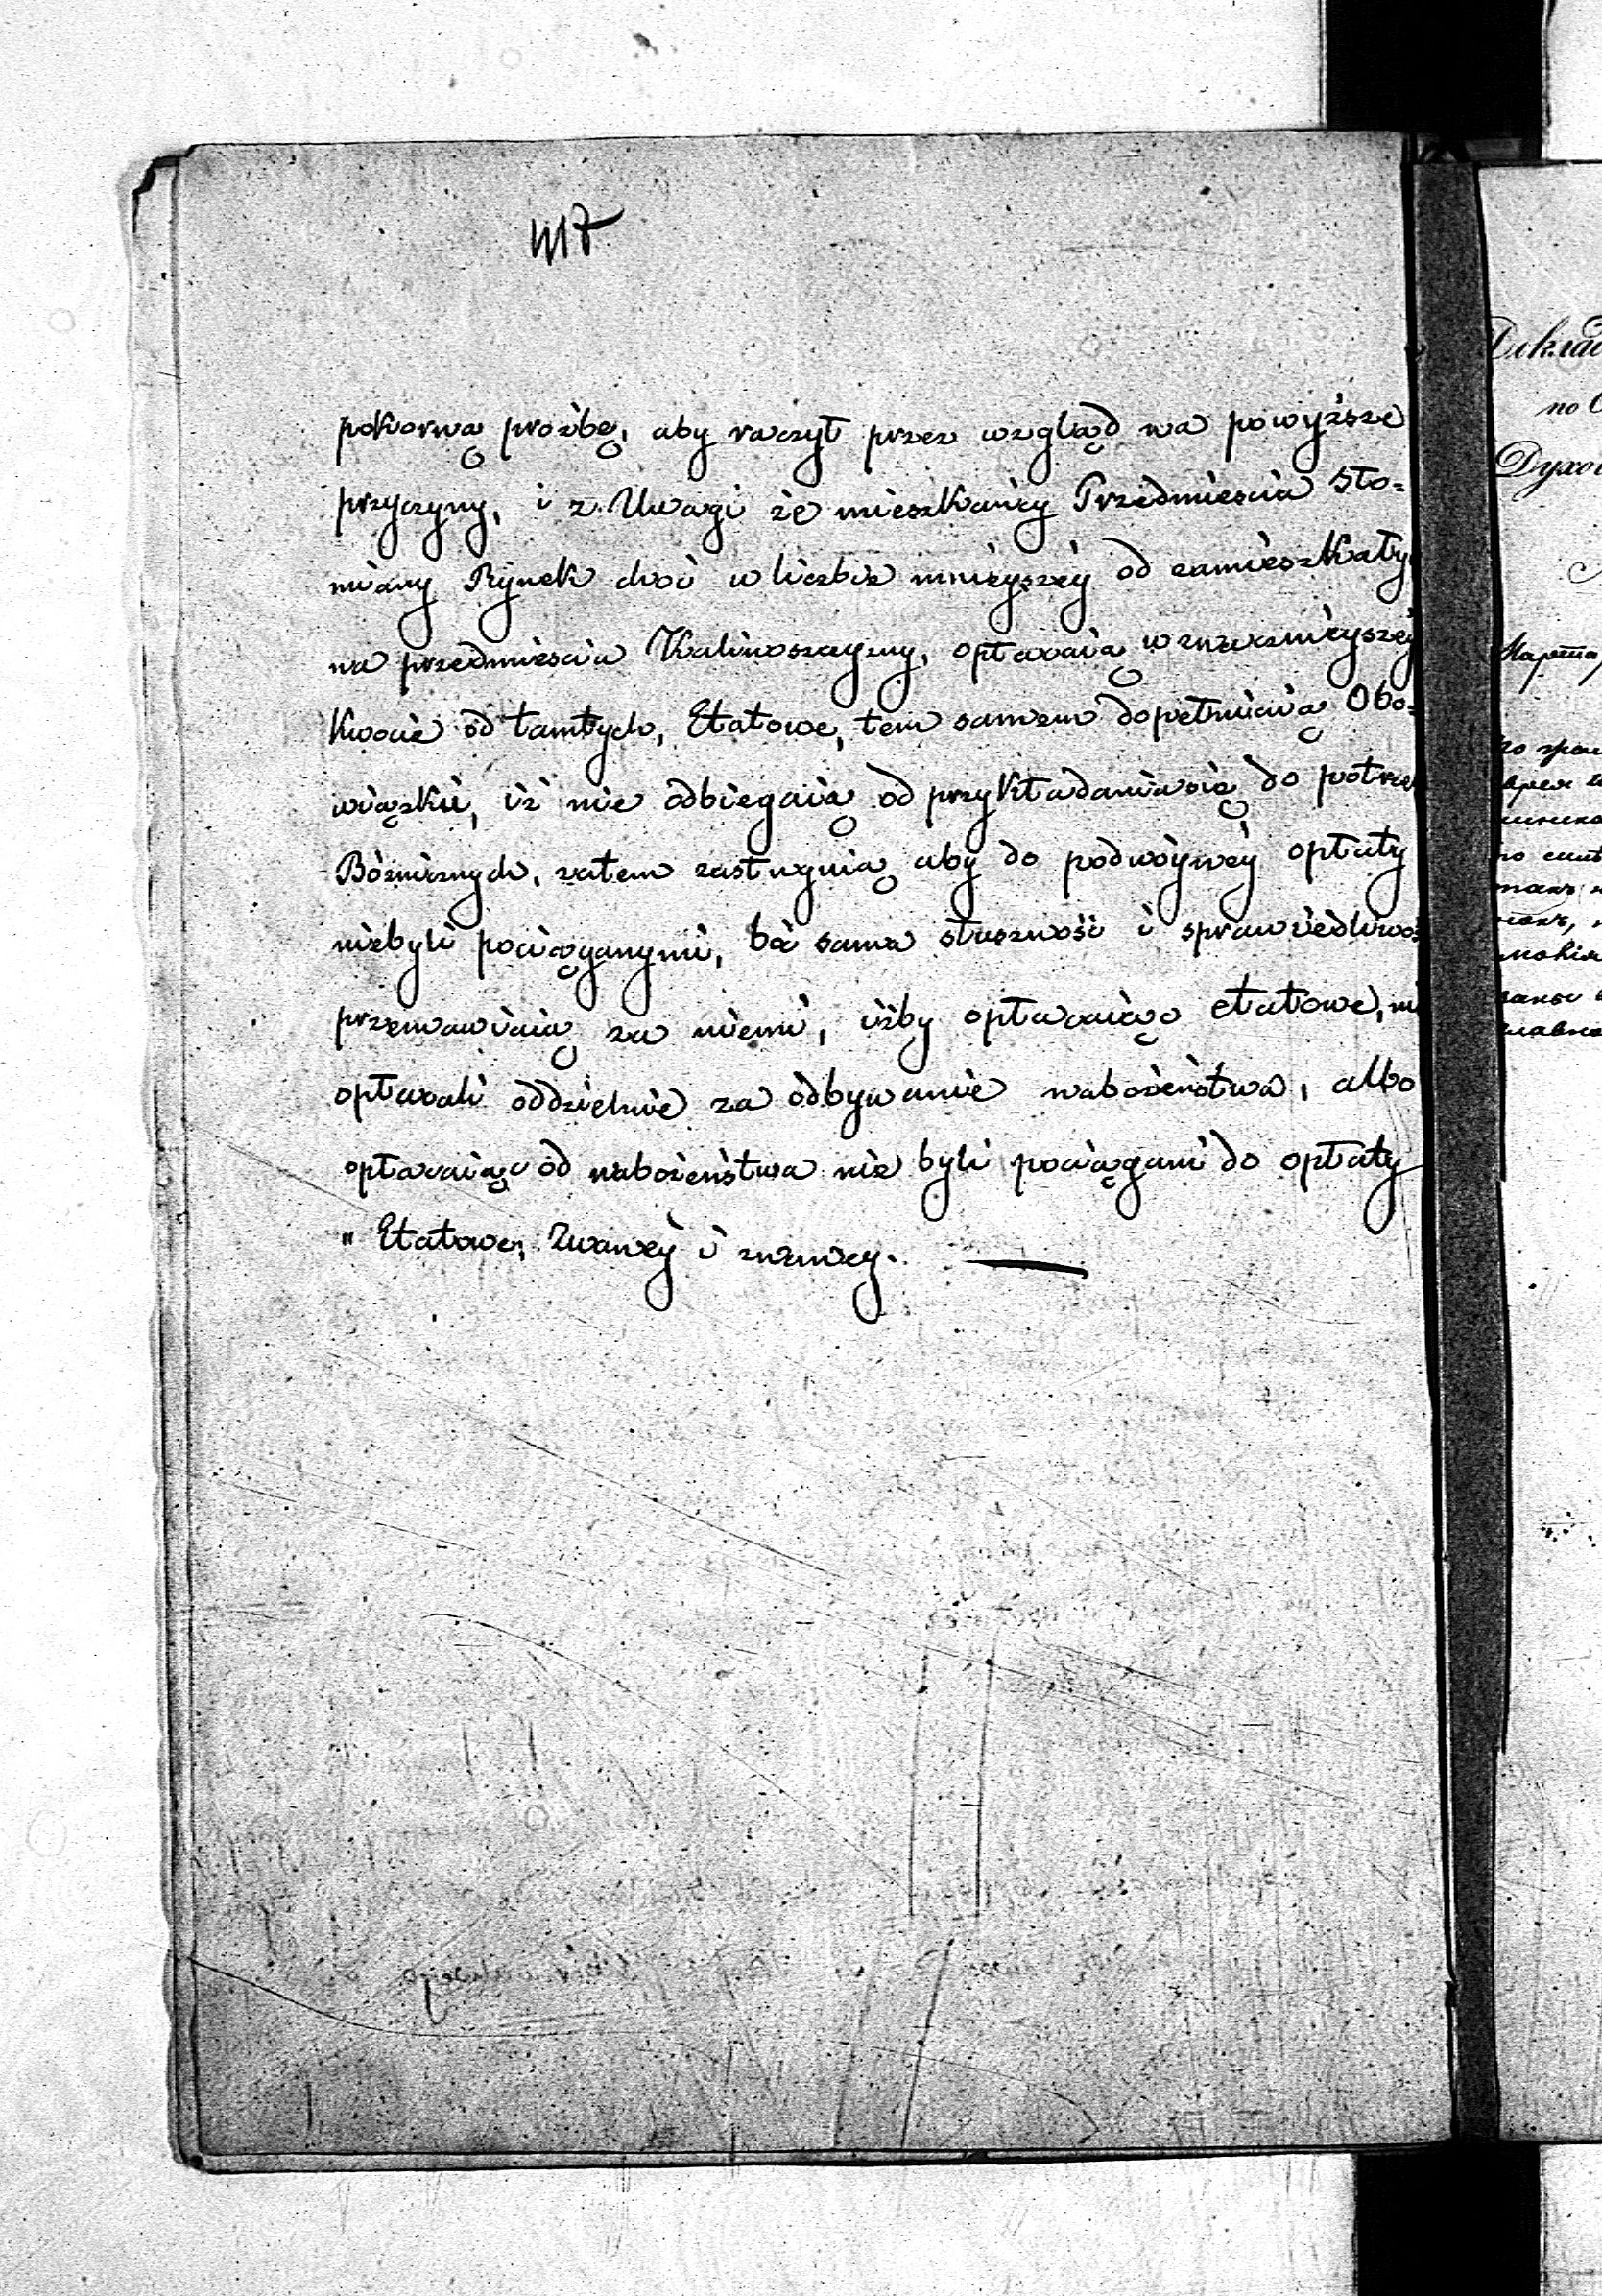 417
pokorną prożbę, aby raczył przez wzgląd na powyższe
przyczyny, i z Uwagi że mieszkańcy Przedmiescia Sło-
miany Rynek choć w liczbie mnieyszéy od zamieszkały
na przedmiescia Kalinoszczyzny, opłacaią w znacznieyszey
Kwocie od tamtych, Etatowe, tem samem dopełniaią Obo-
wiązku, iż nie odbiegaią od przykładania się do potrze
Bóżnicznych, zatem zasługuią aby do podwóyney opłaty
niebyli pociąganymi, bo sama słuszność i sprawiedliwoś
przemawiaią za niemi, iżby opłacaiąc etatowe, ni
opłacali oddzielnie za odbywanie nabożeństwa, albo
opłacaiąc od nabożeństwa nie byli pociągani do opłaty
" Etatowe, Zwaney i znaney.
Докла
по
Духо